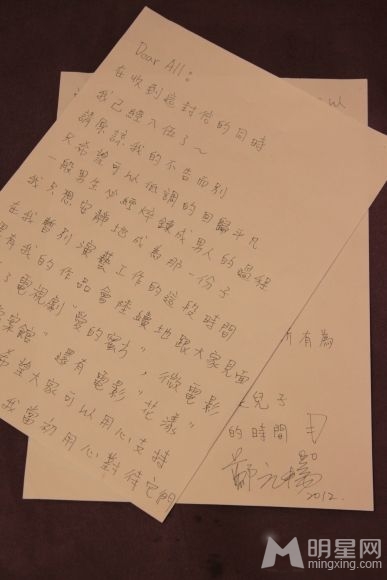 Dear All:
在收到這封信的同時
我已經入伍了~
請原諒我的不告而別
只希望可以低調的回歸平凡
一般男生必經焠鍊成男人的過程
我只想安靜地成為那一份子
在我暫別演藝工作的這段時間
有我的作品會陸續地跟大家見面
了電視劇"愛的蜜方",微電影
案館" 還有電影"花漾"
希望大家可以用心支持
我當初用心對待它們
所有為
兒子
的時間
2012.
明星网
mingxing.com